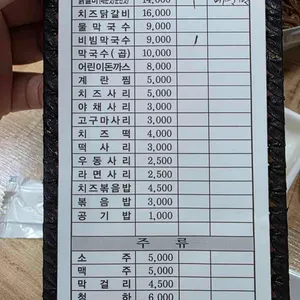 14,000
치즈닭갈비 16,000
물막국수 9,000
비빔막국수 9,000 1
막국수(곱) 10,000
어린이돈까스 8,000
계란찜 5,000
치즈사리 5,000
야채사리 3,000
고구마사리 3,000
치즈떡 4,000
떡사리 3,000
우동사리 2,500
라면사리 2,500
치즈볶음밥 4,500
볶음밥 3,000
공기밥 1,000
주류
소주 5,000
맥주 5,000
막걸리 4,500
청하 6,000